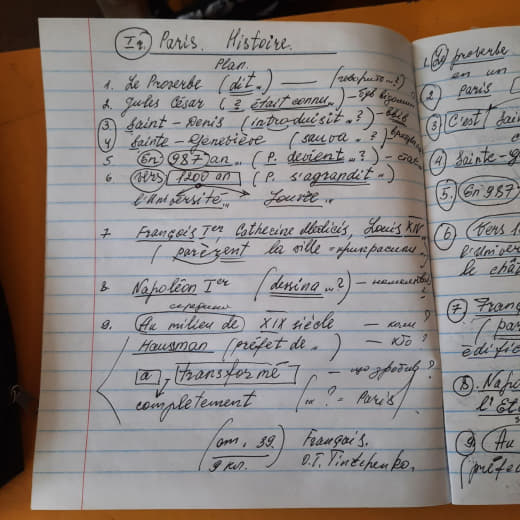 I a. Paris. Histoire.
Plan.
1. Le Proverbe (dit..) — (говорить...?)
2. Jules César (? était connu..) - був відомий
3. Saint-Denis (introduisit..?) - ввів
4. Sainte-Geneviève (sauva..?)
5. En 987 an.. (P. devient..?) - стає
6. Vers 1200 an (P. s'agrandit..)
l'Université.. Louvre...
7. François Ier Catherine Medicis, Louis XIV..
(parèrent la ville = прикрасили
8. Napoléon Ier (dessina..?) - намалював ?
9. Au milieu de XIX siècle — коли ?
Hausman (préfet de..) — хто ?
a transformé — що зробив ?
complètement (..? = Paris)
(ст. 39. François.
9 кл.) O.T. Tintchenko.
1. Le proverbe
en un
2 Paris
3 C'est Sain
4 Sainte-G
5. En 987
6 Vers 1
l'Univer
le chât
7 Franç
(par
édifi
8. Napo
l'Et
9 Au
(préfe